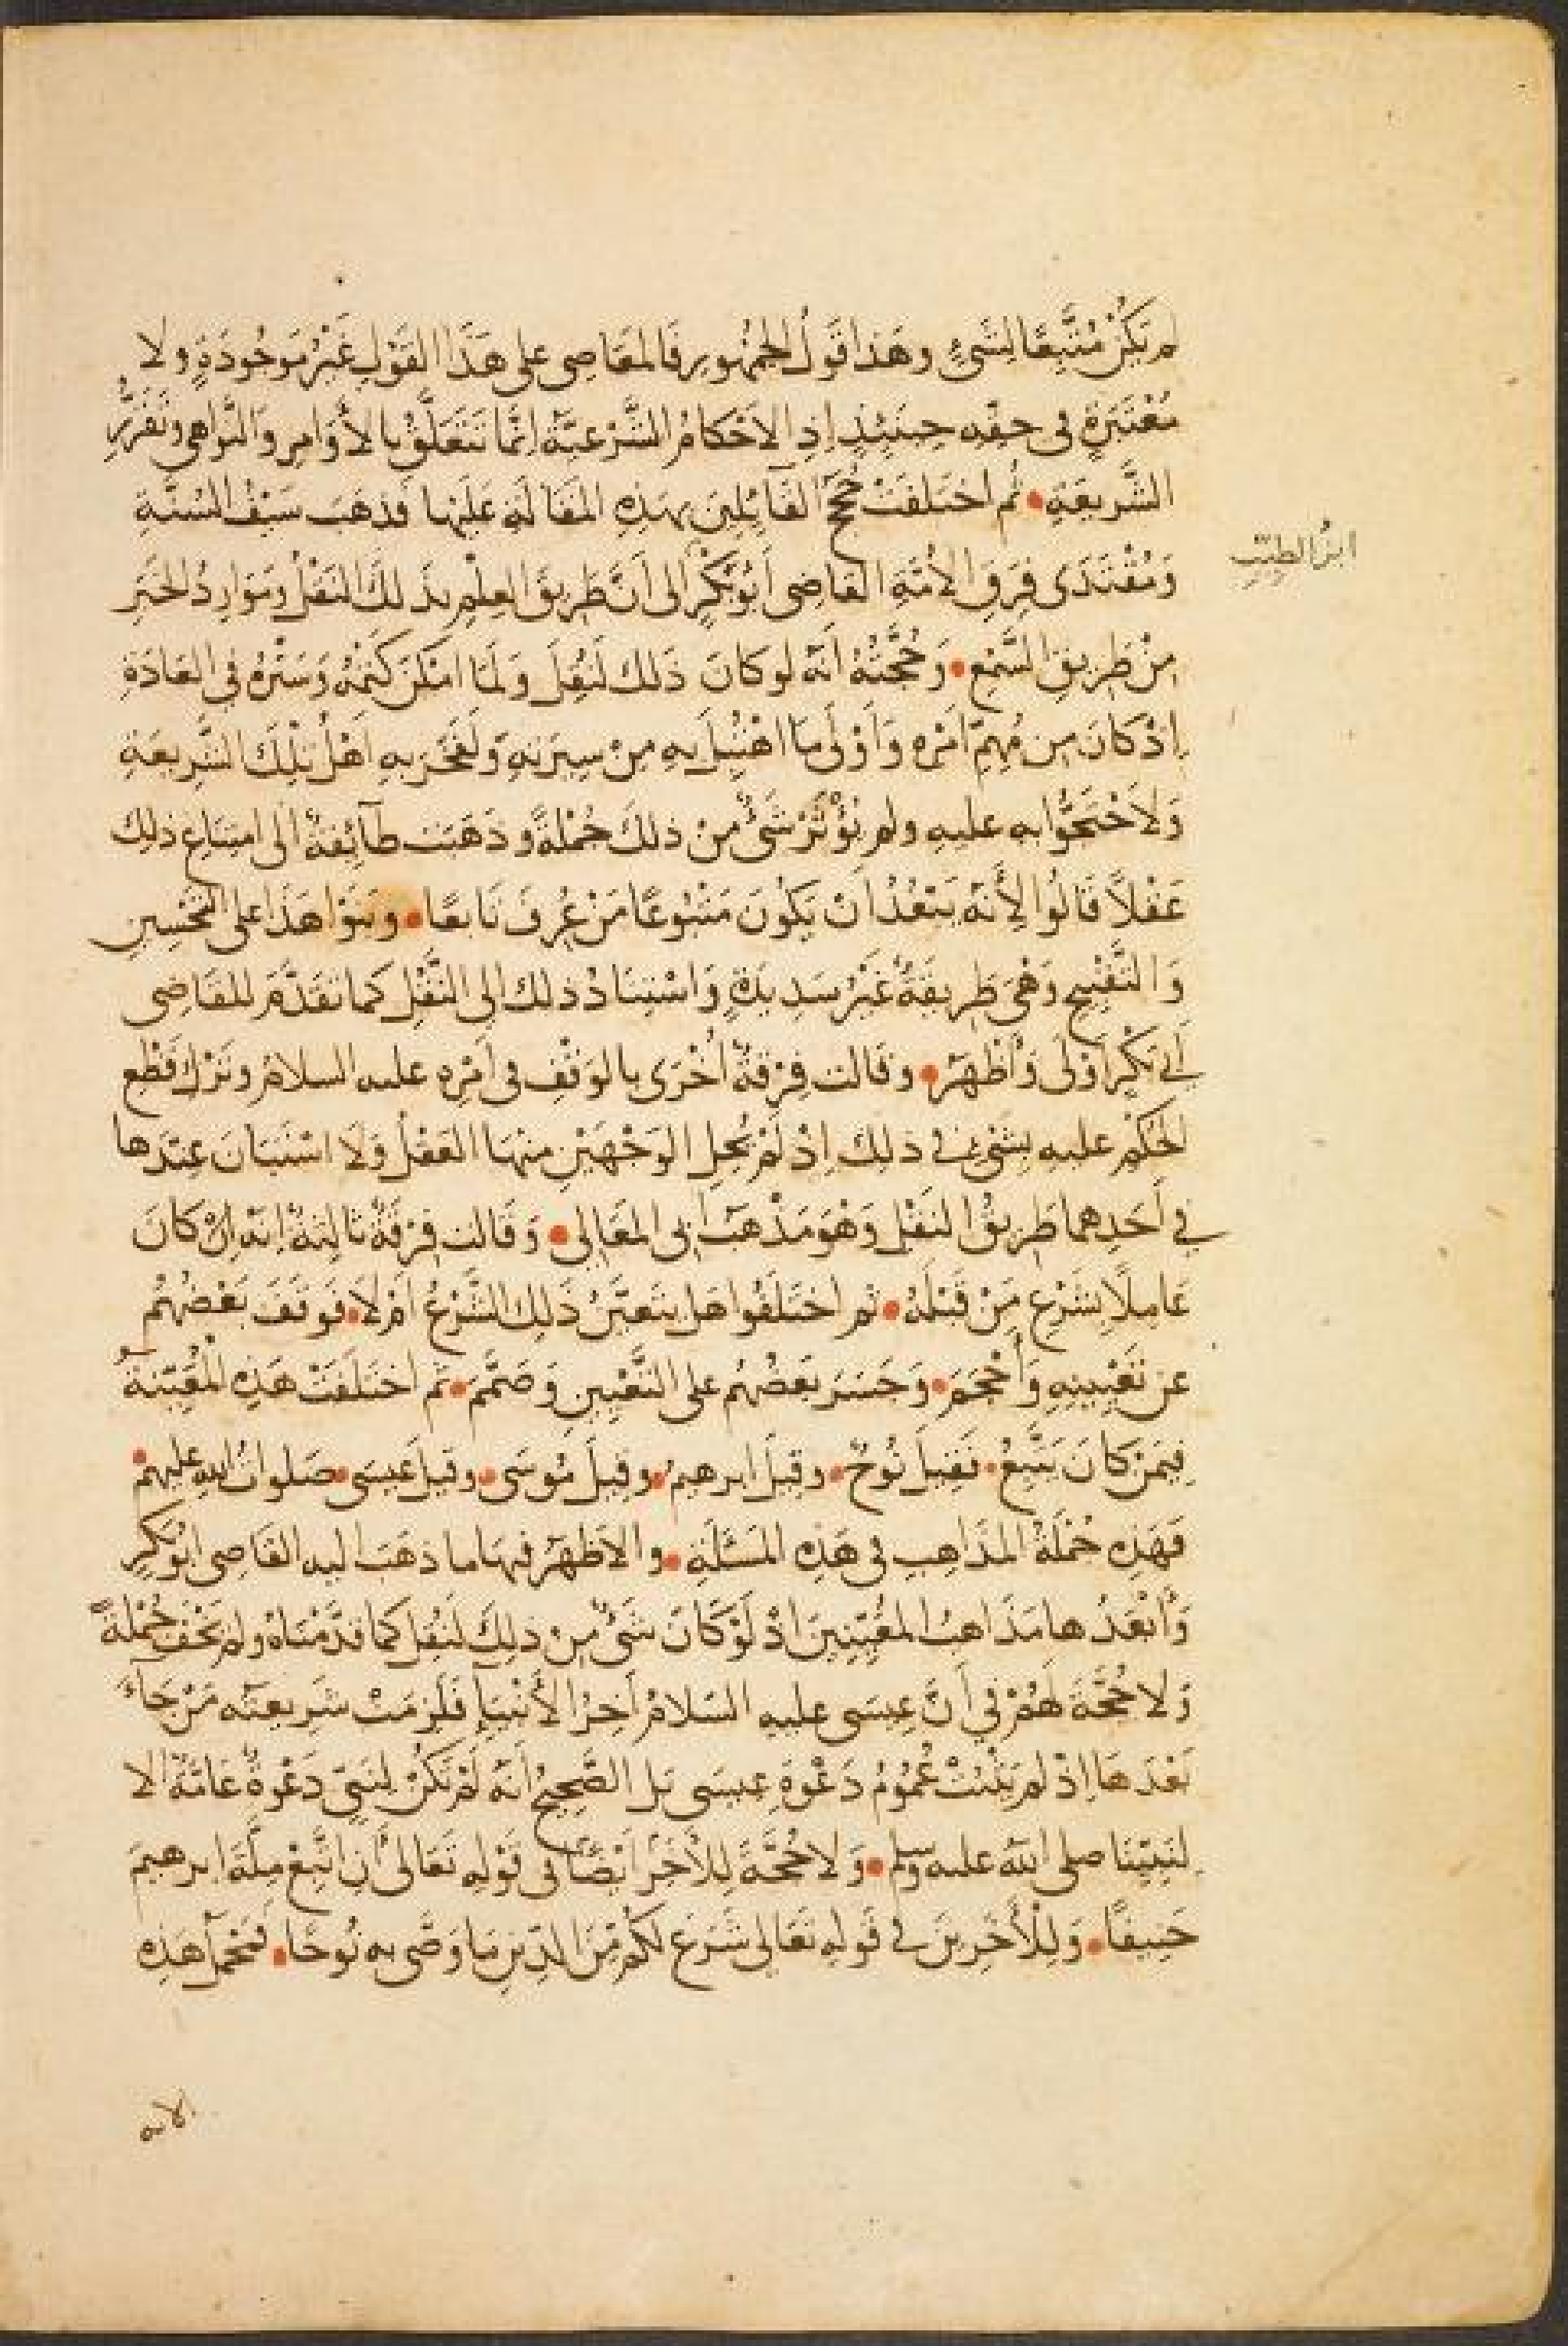 لم يَكُنْ مُتَّبِعًا لِشَىْءٍ وهَذا قَولُ الجمْهُورِ فَالمعَاصِى على هَذَا القَوْلِ غَيْرُ مَوجُودَةٍ ولا
مُعْتَبَرَةٍ فى حقِّه حِينَئِذٍ إذِ الاَحْكامُ الشَّرْعيَّةُ اِنَّمَا تَتَعَلَّقُ بِالأوَامِرِ وَالنَّوَاهِى وتَقَرُّرِ
الشَّرِيعَةِ • ثُم اختَلَفَتْ حُجَجُ القَآئِلِينَ بهَذِهِ المَقَالَةِ عَلَيْهَا فَذهَبَ سَيْفُ السُّنَّةِ
ابْنُ الطيِّبِ
وَمُقْتَدَى فِرَقِ الأُمَّةِ القَاضِى أَبُوبَكْرٍ الى اَنَّ طَرِيقَ العِلْمِ بذَلكَ النَقْلُ ومَوَارِدُ الخَبَرِ
مِنْ طَرِيقِ السَّمْعِ • وَحُجَّتُهُ أنّه لوكانَ ذَلك لَنُقِلَ وَلَمَا امْكَنَ كَتمُهُ وَسَتْرُهُ في العَادَةِ
إذْ كانَ مِن مُهِمِّ اَمْرِهِ وَاَوْلَى مَا اهْتُبِلَ بِهِ مِنْ سِيرَتِهِ وَلَفَخَرَ بهِ أهْلُ تِلْكَ الشَّرِيعَةِ
وَلاَحْتَجُّوا به عليهِ ولم يُؤْثَرْ شَىْءٌ مِنْ ذلكَ جُمْلَةً وذَهَبَت طَآئِفَةٌ الى امتِنَاعِ ذلِك
عَقْلاً قَالُوا لِأنّه يَبْعُدُ اَنْ يَكُونَ مَتْبُوعًا مَنْ عُرِفَ تَابعًا • وبَنَوْا هَذَا على التَّحْسِينِ
وَالتَّقْبِيحِ وَهْىَ طَرِيقَةٌ غَيْرُ سَدِيدَةٍ وَاسْتِنَادُ ذلك الى النَّقْلِ كما تقَدَّمَ للقَاضِى
أَبِي بَكْرٍ اَوْلَى وَأَظْهَرُ • وقَالت فِرْقَةٌ اُخْرَى بالوَقْفِ فى اَمْرِهِ عليه السلامُ وتَرْكِ قَطْعِ
الحُكْمِ عليهِ بِشَىْءٍ فى ذلك إذْ لَمْ يُحِلِ الوَجْهَيْنِ منهَا العَقْلُ وَلَا اسْتَبَانَ عِنْدَها
في اَحَدِهما طَرِيقُ النَقْلِ وَهْوَ مَذْهَبُ اَبِى المَعَالِى • وَقَالَت فِرْقَةٌ ثَالِثَةٌ اِنّهُ كانَ
عَامِلاً بِشَرْعِ مَنْ قَبْلَهُ • ثم اختَلَفُوا هَل يتَعيَّنُ ذَلِكَ الشَّرْعُ اَمْ لاَ • فَوقَفَ بَعْضُهُم
عن تَعْيِينِهِ وَأَحْجَمَ • وَجَسَرَ بَعْضُهُم على التَّعْيِينِ وَصَمَّمَ • ثم اختَلَفَتْ هَذِهِ المُعَيِّنَةُ
فِيمَنْ كانَ يَتَّبِعُ • فَقِيلَ نُوحٌ • وقِيلَ ابرهيمُ • وقِيلَ مُوسَى • وقيلَ عيسَى • صَلوات الله عليهمْ •
فَهَذِه جُمْلَةُ المذَاهِبِ فى هَذِهِ المَسْئَلَةِ • والاَظْهَرُ فيهَا ما ذهَبَ اليه القَاضِى ابُوبَكْرٍ
وَأَبْعَدُها مَذَاهبُ المُعَيِّنِينَ اذْ لَوْكَانَ شَىْءٌ مِنْ ذلِكَ لَنُقِلَ كما قدَّمْنَاهُ ولم يَخْفَ جُمْلَةً
وَلا حُجَّةَ لَهُمْ فِي اَنَّ عِيسَى عليهِ السَلامُ اَخِرُ الأنْبِيَآءِ فَلَزِمَتْ شَرِيعَتُه مَنْ جَآءَ
بَعْدَهَا اِذْ لم يَثْبُتْ عُمُومُ دَعْوَةِ عِيسَى بَل الصَّحِيحُ أنّه لَمْ تَكُنْ لِنَبِيٍّ دَعْوَةٌ عَامَّةٌ الا
لِنَبِيِّنَا صلى اللّه عليه وسلم • وَلا حُجَّةَ لِلأَخَرِ اَيْضًا فى قَوْلِهِ تَعَالَى أَنِ اتَّبِعْ مِلَّةَ ابرهيمَ
حَنِيفًا • وَلِلأَخَرِينَ فى قَولِهِ تَعَالَى شَرَعَ لَكُم مِّنَ الدِّينِ مَا وَصَّى بِه نُوحًا • فمَحْمَلُ هَذِهِ
الايه